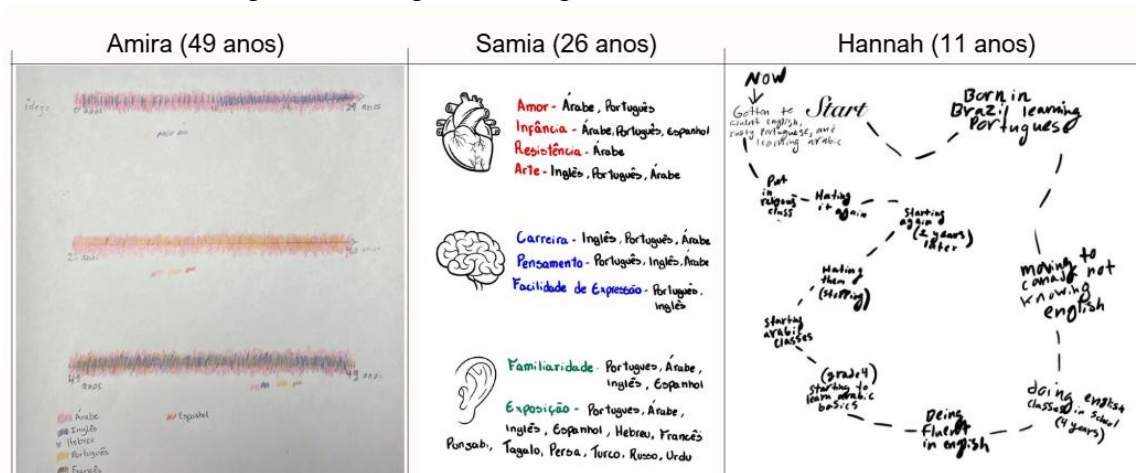 Amira (49 anos)
Samia (26 anos)
Hannah (11 anos)
0 anos
24 anos
40 anos
41
anos
49 anos
Árabe
Inglês
Hebreu
Português
Francês
Espanhol
Amor - Árabe, Português
Infância - Árabe, Português, Espanhol
Resistência - Árabe
Arte - Inglês, Português, Árabe
Carreira - Inglês, Português, Árabe
Pensamento - Português, Inglês, Árabe
Facilidade de Expressão - Português,
Inglês
Familiaridade - Portugues, Árabe,
Inglês, Espanhol
Exposição - Portugues, Árabe,
Inglês, Espanhol, Hebreu, Francês
Punjabi, Tagalo, Persa, Turco, Russo, Urdu
Start
Born in
Brazil learning
Portuguese
moving to
canada not
knowing
english
doing english
classes in school
(4 years)
Being
fluent
in english
(grade 4)
starting to
learn arabic
basics
starting
arabic
classes
Hating
them
(stopping)
Starting
again
(2 years)
later
Hating
it again
Put
in
religous
class
Gotten to
fluent english,
rusty Portuguese, and
learning arabic
NOW